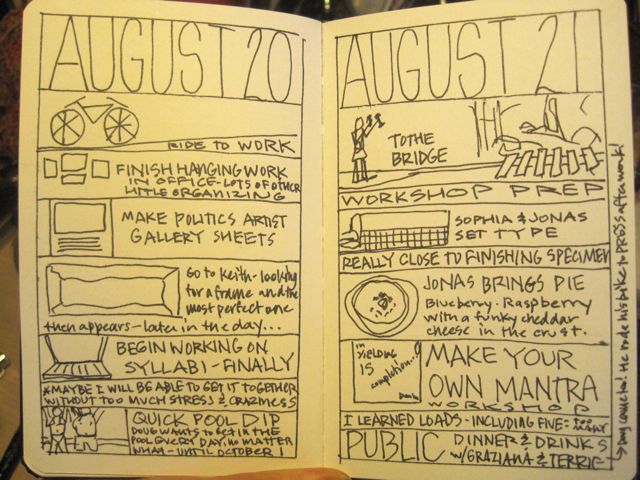 AUGUST 20
RIDE TO WORK
FINISH HANGING WORK
IN OFFICE - LOTS OF OTHER
LITTLE ORGANIZING
MAKE POLITICS ARTIST
GALLERY SHEETS
GO TO KEITH - LOOKING
for a frame and the
most perfect one
then appears - later in the day...
BEGIN WORKING ON
SYLLABI - FINALLY
*MAYBE I WILL BE ABLE TO GET IT TOGETHER
WITHOUT TOO MUCH STRESS & CRAZINESS
QUICK POOL DIP
DOUG WANTS TO GET IN THE
POOL EVERY DAY, NO MATTER
WHAT - UNTIL OCTOBER 1
AUGUST 21
TO THE
BRIDGE
WORKSHOP PREP
SOPHIA & JONAS
SET TYPE
REALLY CLOSE TO FINISHING SPECIMEN
JONAS BRINGS PIE
Blueberry. Raspberry
with a funky cheddar
cheese in the crust.
in
YIELDING
IS
completion...
MAKE YOUR
OWN MANTRA
WORKSHOP
I LEARNED LOADS - INCLUDING FIVE =
PUBLIC DINNER & DRINKS
W/ GRAZIANA & TERRIE
→ Doug came too! He rode his bike to PRESS after work!